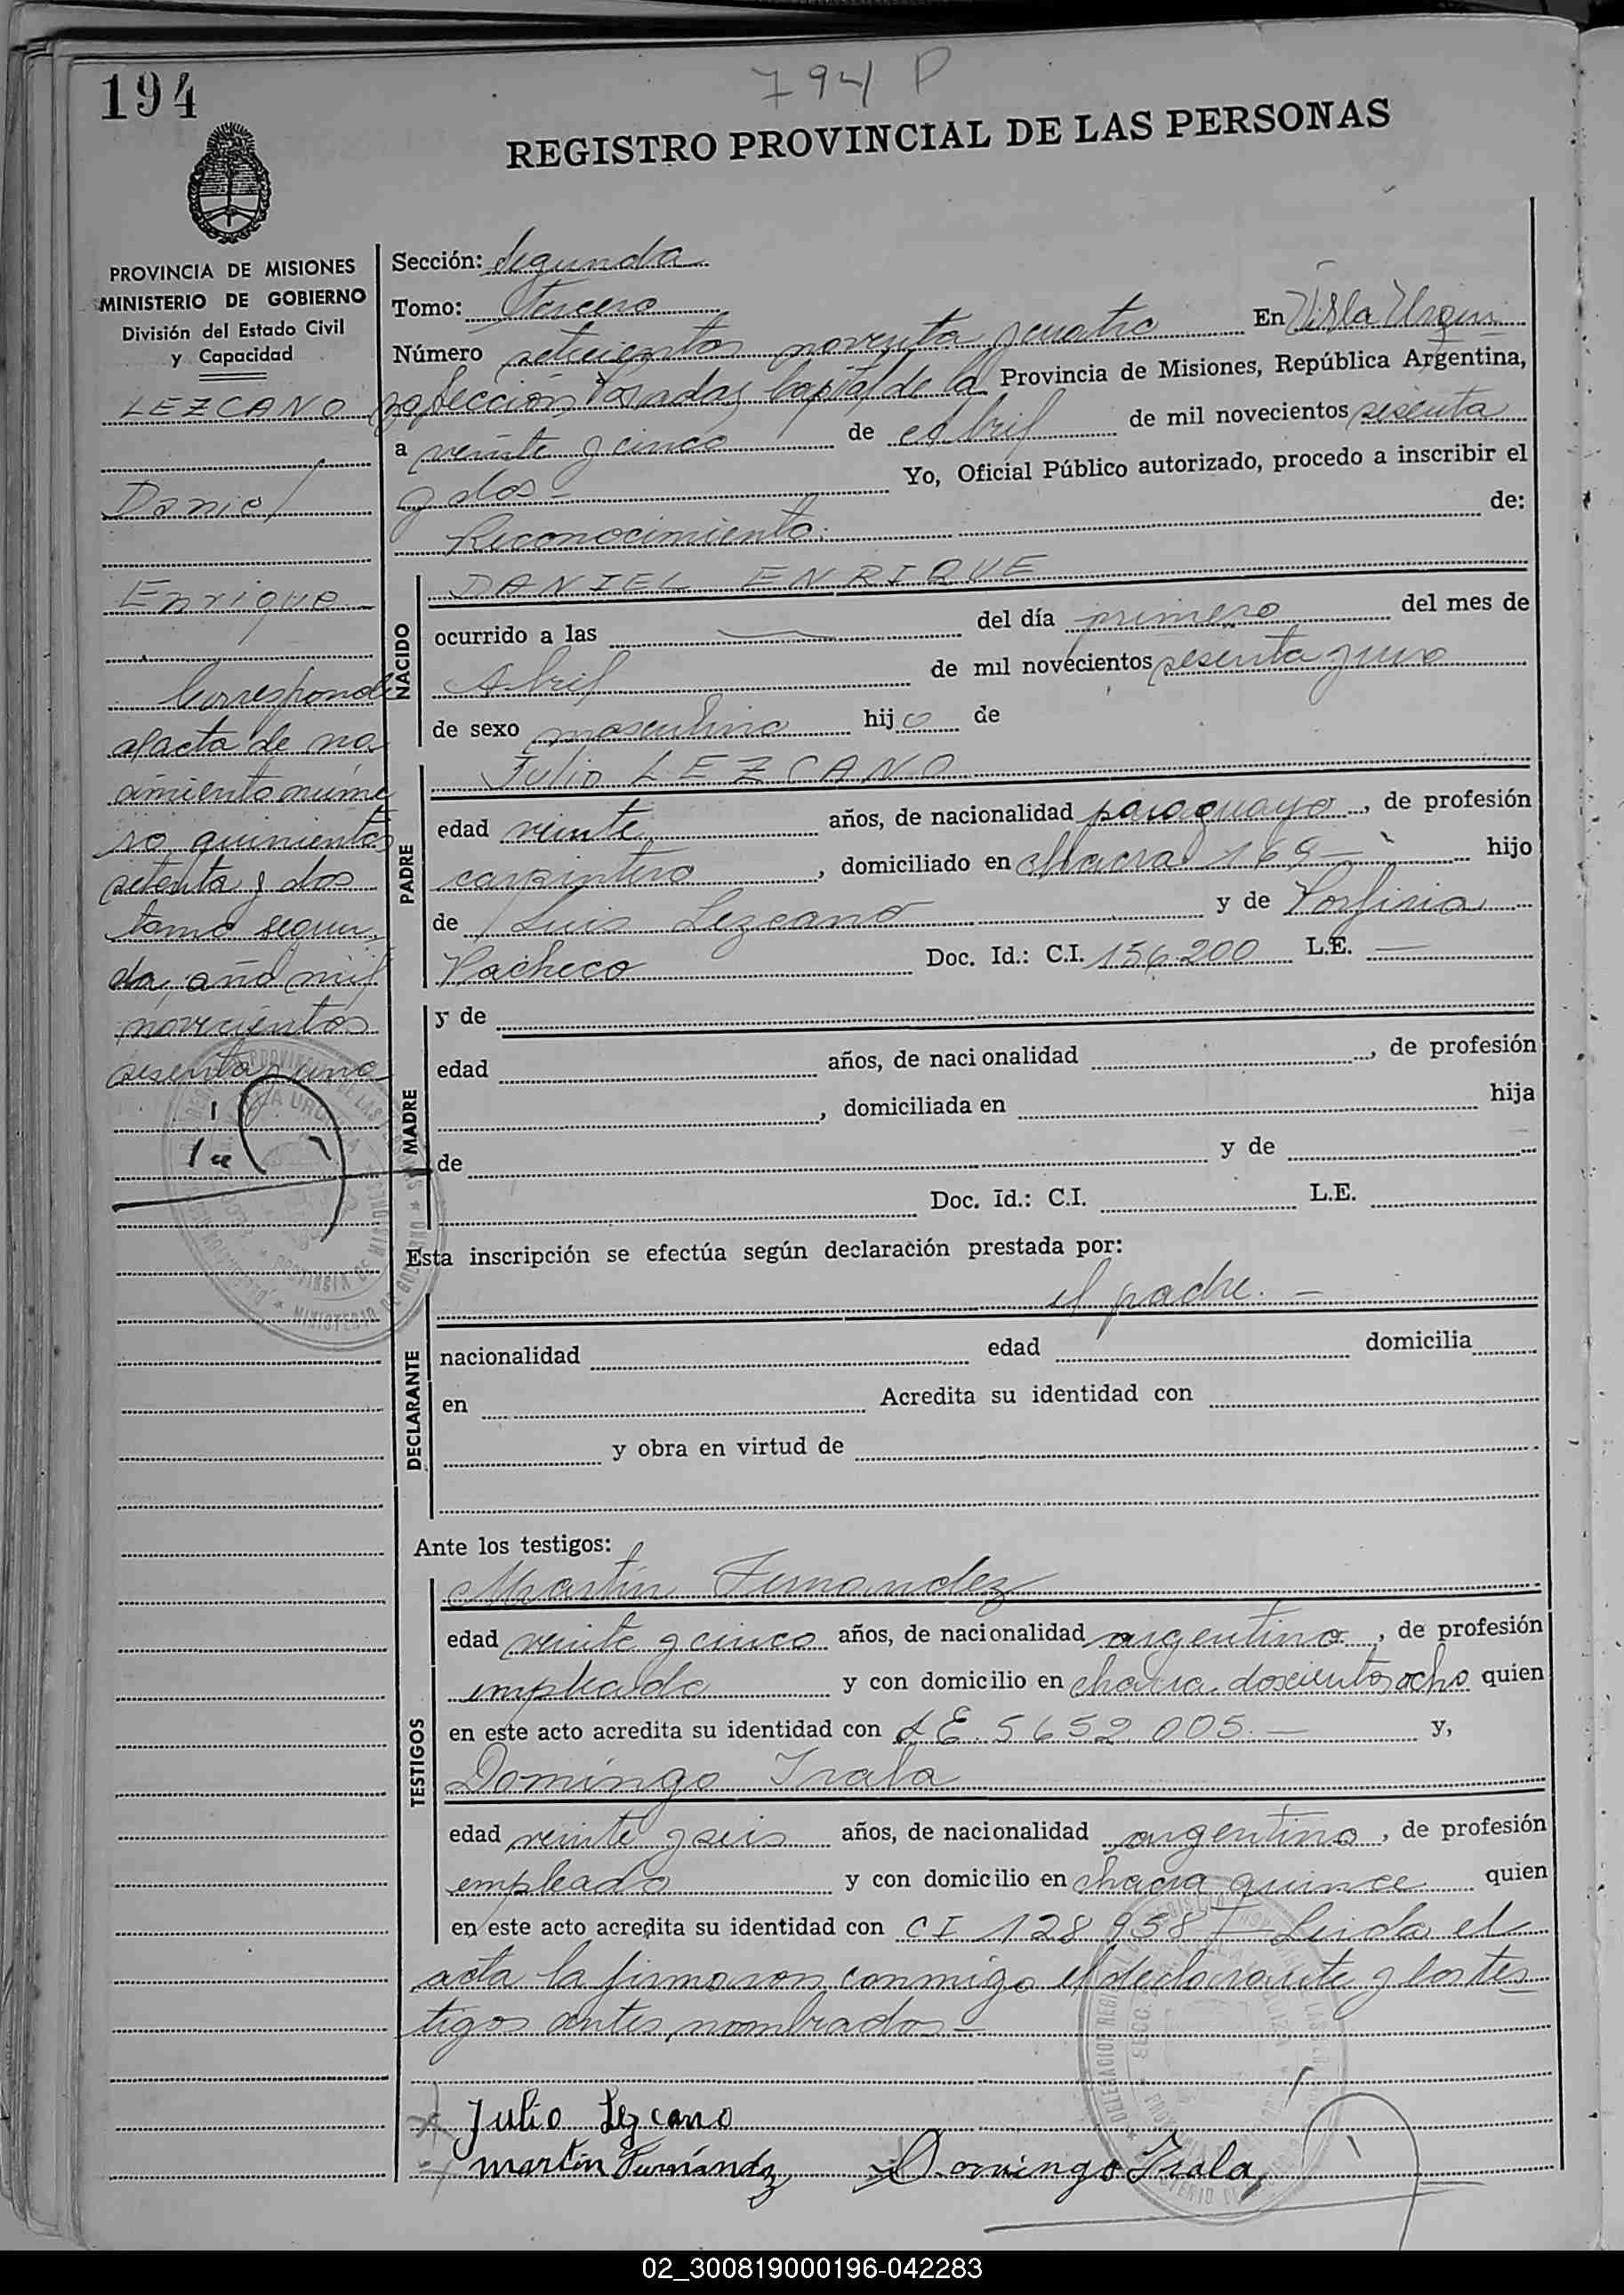 194
794 P
REGISTRO PROVINCIAL DE LAS PERSONAS
PROVINCIA DE MISIONES
MINISTERIO DE GOBIERNO
División del Estado Civil
y Capacidad
LEZCANO
Daniel
Enrique
Corresponde
al acta de na
cimiento núme
ro quinientos
setenta y dos
tomo segun
do, año mil
novecientos
sesenta y uno
Sección: Segunda
Tomo: Tercero
Número setecientos noventa y cuatro En Villa Urqui
za Sección Posadas Capital de la Provincia de Misiones, República Argentina,
a veinte y cinco de Abril de mil novecientos sesenta
y dos - Yo, Oficial Público autorizado, procedo a inscribir el
Reconocimiento. de:
NACIDO
DANIEL ENRIQUE
ocurrido a las del día primero del mes de
Abril de mil novecientos sesenta y uno
de sexo masculino hijo de
PADRE
Julio LEZCANO
edad veinte años, de nacionalidad paraguayo, de profesión
carpintero, domiciliado en chacra 169 - hijo
de Luis Lezcano y de Porfiria
Pacheco Doc. Id.: C.I. 156.200 L.E. —
MADRE
y de
edad años, de nacionalidad , de profesión
, domiciliada en hija
de y de
Doc. Id.: C.I. L.E.
Esta inscripción se efectúa según declaración prestada por:
el padre. -
DECLARANTE
nacionalidad edad domicilia
en Acredita su identidad con
y obra en virtud de
Ante los testigos:
TESTIGOS
Martín Fernandez
edad veinte y cinco años, de nacionalidad argentino, de profesión
empleado y con domicilio en chacra doscientos ocho quien
en este acto acredita su identidad con L E. 5652.005. — y,
Domingo Irala
edad veinte y seis años, de nacionalidad argentino, de profesión
empleado y con domicilio en chacra quince quien
en este acto acredita su identidad con C I 128 958 - Leida el
acta la firmaron conmigo el declarante y los tes
tigos antes nombrados -
Julio Lezcano
Martín Fernández Domingo Irala
02_300819000196-042283